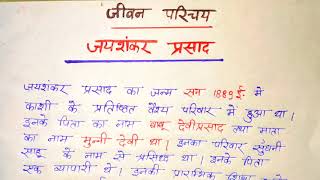 जीवन परिचय
जयशंकर प्रसाद
जयशंकर प्रसाद का जन्म सन 1889 ई० में
काशी के प्रतिष्ठित वैश्य परिवार में हुआ था।
इनके पिता का नाम बाबू देवीप्रसाद तथा माता
का नाम मुन्नी देवी था। इनका परिवार सुंघनी
साहू के नाम से प्रसिद्ध था। इनके पिता
एक व्यापारी थे। इनकी प्रारंभिक शिक्षा